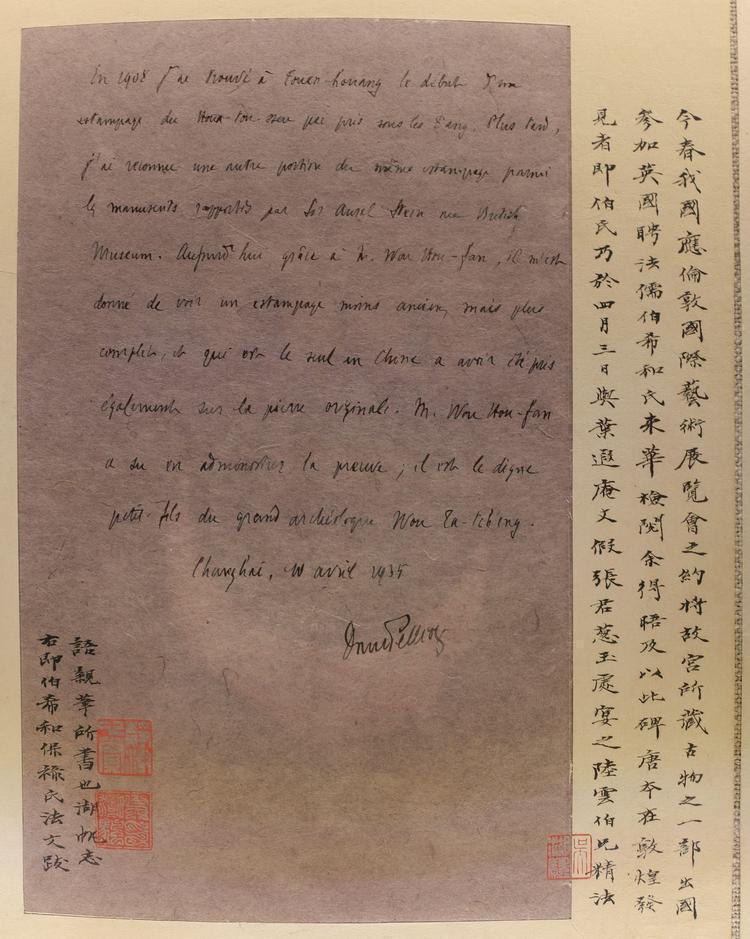 En 1908 j'ai trouvé à Touen-houang le début d'un
estampage du Houa-tou-sseu pei pris sous les T'ang. Plus tard,
j'ai reconnu une autre portion du même estampage parmi
les manuscrits rapportés par Sir Aurel Stein au British
Museum. Aujourd'hui grâce à M. Wou Hou-fan, il m'est
donné de voir un estampage moins ancien, mais plus
complet, et qui est le seul en Chine à avoir été pris
également sur la pierre originale. M. Wou Hou-fan
a su en administrer la preuve ; il est le digne
petit-fils du grand archéologue Wou Ta-tch'eng.
Changhai, 10 avril 1935
Paul Pelliot
今春我國應倫敦國際藝術展覽會之約將故宮所藏古物之一部出國
參加英國聘法儒伯希和氏來華檢閱余得晤及以此碑唐本在敦煌發
見者即伯氏乃於四月三日與葉遐庵丈假張君蔥玉處宴之陸雲伯兄精法
右即伯希和保祿氏法文跋
語親筆所書也湖帆志